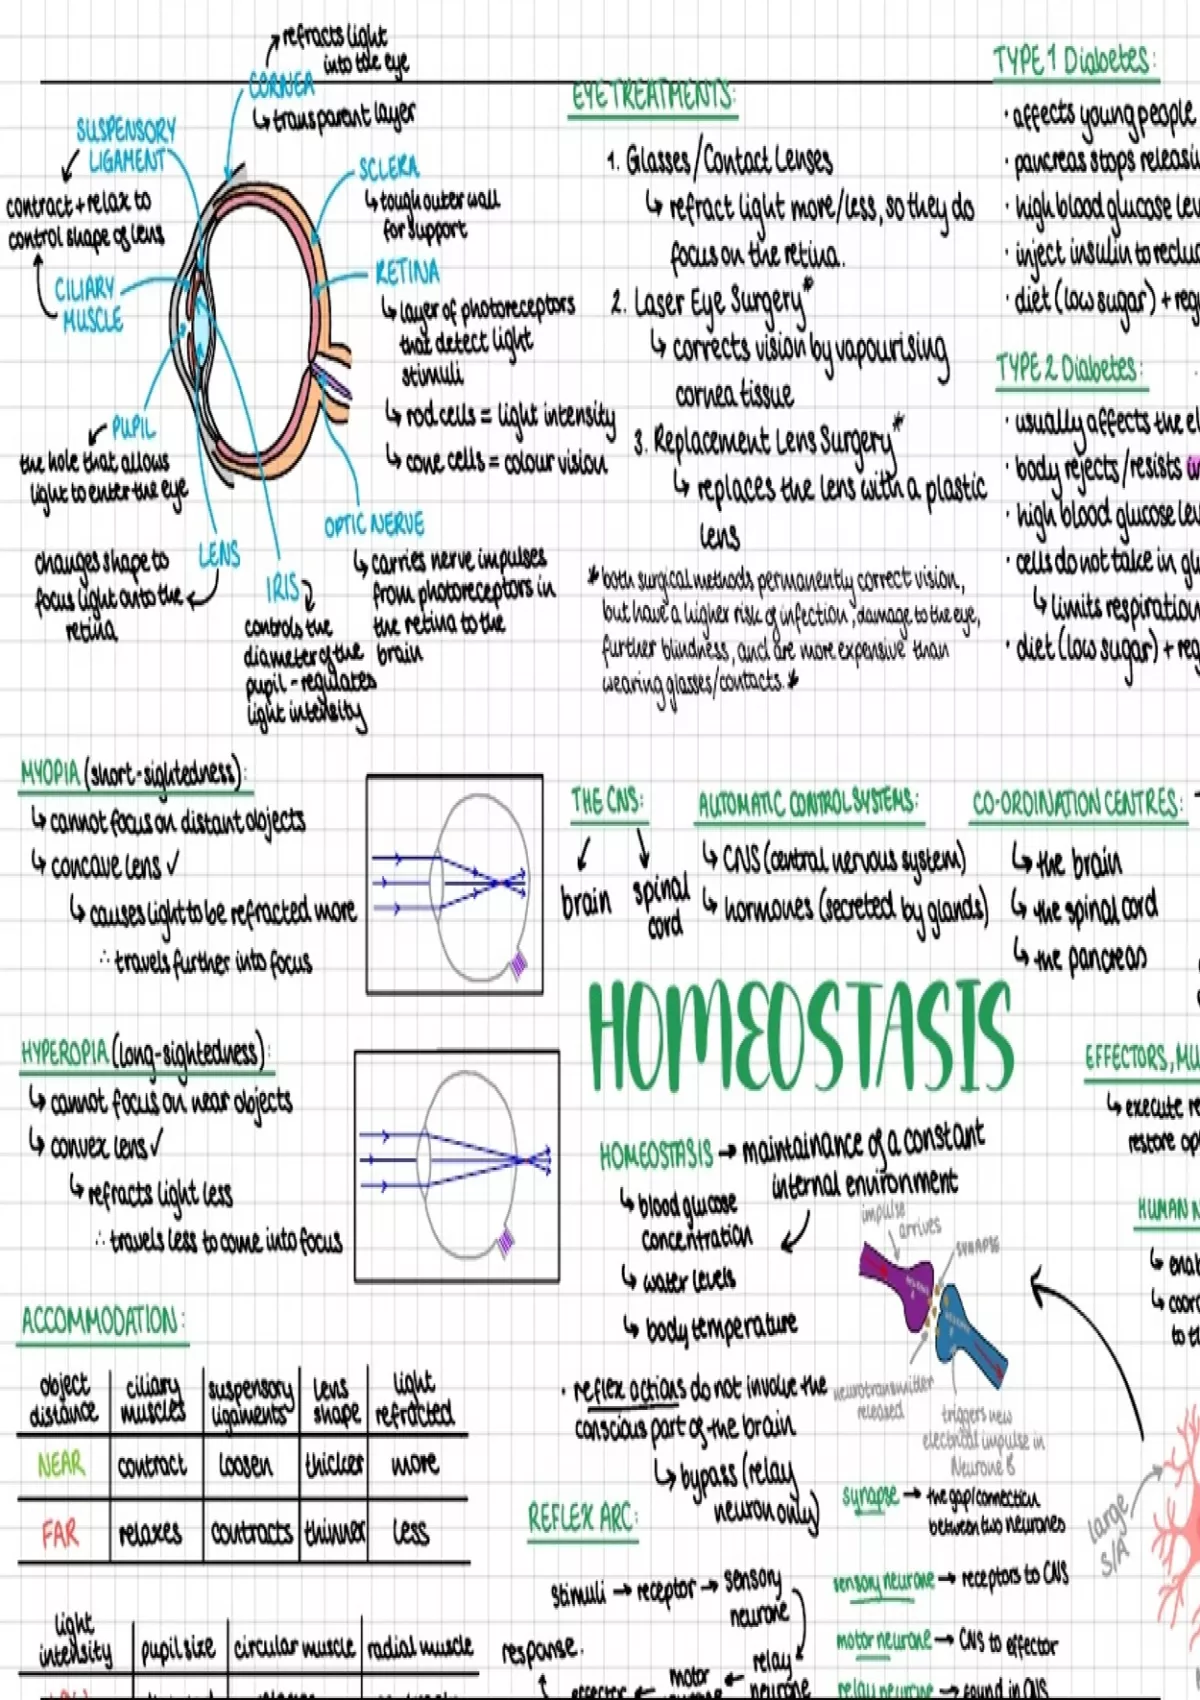 refracts light
into the eye
CORNEA
↳ transparent layer
SUSPENSORY
LIGAMENT
contract + relax to
control shape of lens
CILIARY
MUSCLE
SCLERA
↳ tough outer wall
for support
RETINA
↳ layer of photoreceptors
that detect light
stimuli
↳ rod cells = light intensity
↳ cone cells = colour vision
PUPIL
the hole that allows
light to enter the eye
LENS
changes shape to
focus light onto the
retina
IRIS
controls the
diameter of the
pupil - regulates
light intensity
OPTIC NERVE
↳ carries nerve impulses
from photoreceptors in
the retina to the
brain
EYE TREATMENTS:
1. Glasses/Contact Lenses
↳ refract light more/less, so they do
focus on the retina.
2. Laser Eye Surgery*
↳ corrects vision by vapourising
cornea tissue
3. Replacement Lens Surgery*
↳ replaces the lens with a plastic
lens
* both surgical methods permanently correct vision,
but have a higher risk of infection, damage to the eye,
further blindness, and are more expensive than
wearing glasses/contacts.*
TYPE 1 Diabetes:
· affects young people
· pancreas stops releasi
· high blood glucose lev
· inject insulin to reduc
· diet (low sugar) + reg
TYPE 2 Diabetes:
· usually affects the el
· body rejects/resists in
· high blood glucose lev
· cells do not take in gl
↳ limits respiration
· diet (low sugar) + reg
MYOPIA (short-sightedness):
↳ cannot focus on distant objects
↳ concave lens ✓
↳ causes light to be refracted more
∴ travels further into focus
HYPEROPIA (long-sightedness):
↳ cannot focus on near objects
↳ convex lens ✓
↳ refracts light less
∴ travels less to come into focus
THE CNS:
brain
spinal
cord
AUTOMATIC CONTROL SYSTEMS:
↳ CNS (central nervous system)
↳ hormones (secreted by glands)
CO-ORDINATION CENTRES:
↳ the brain
↳ the spinal cord
↳ the pancreas
HOMEOSTASIS
HOMEOSTASIS → maintainance of a constant
internal environment
↳ blood glucose
concentration
↳ water levels
↳ body temperature
EFFECTORS, MU
↳ execute re
restore op
HUMAN N
↳ enab
↳ coor
to t
impulse
arrives
SYNAPSE
neurotransmitter
released
triggers new
electrical impulse in
Neurone B
· reflex actions do not involve the
conscious part of the brain
↳ bypass (relay
neuron only)
synapse → the gap/connection
between two neurones
sensory neurone → receptors to CNS
motor neurone → CNS to effector
relay neurone → found in CNS
large
S/A
ACCOMMODATION:
object distance | ciliary muscles | suspensory ligaments | lens shape | light refracted
NEAR | contract | loosen | thicker | more
FAR | relaxes | contracts | thinner | less
light intensity | pupil size | circular muscle | radial muscle
REFLEX ARC:
stimuli → receptor → sensory
neurone
relay
neurone
motor
effector
response.